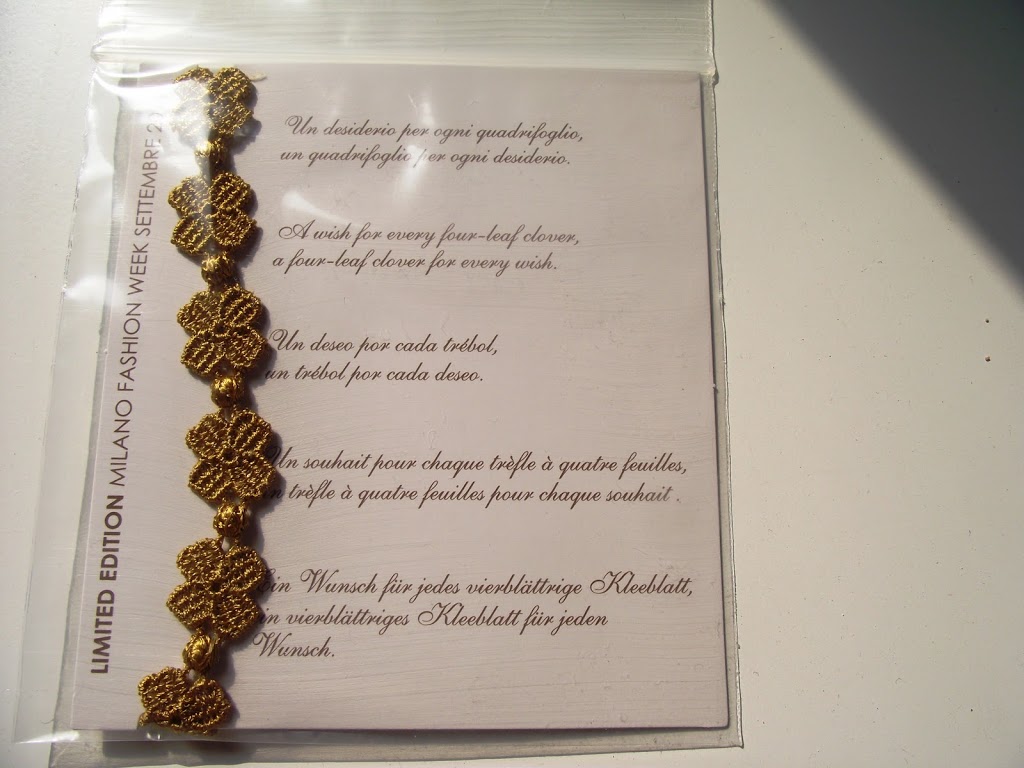 LIMITED EDITION MILANO FASHION WEEK SETTEMBRE
Un desiderio per ogni quadrifoglio,
un quadrifoglio per ogni desiderio.
A wish for every four-leaf clover,
a four-leaf clover for every wish.
Un deseo por cada trébol,
un trébol por cada deseo.
Un souhait pour chaque trèfle à quatre feuilles,
trèfle à quatre feuilles pour chaque souhait .
Ein Wunsch für jedes vierblättrige Kleeblatt,
vierblättriges Kleeblatt für jeden
Wunsch.